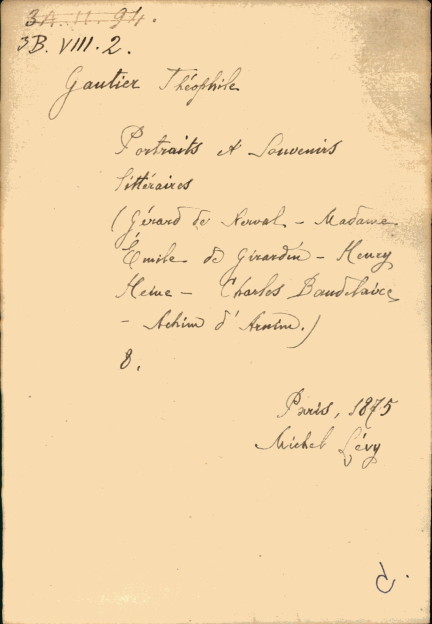 3A. II. 94.
3B. VIII. 2.
Gautier Théophile
Portraits et Souvenirs
littéraires
(Gérard de Nerval – Madame
Émile de Girardin – Henry
Heine – Charles Baudelaire
– Achim d'Arnim.)
8.
Paris, 1875
Michel Lévy